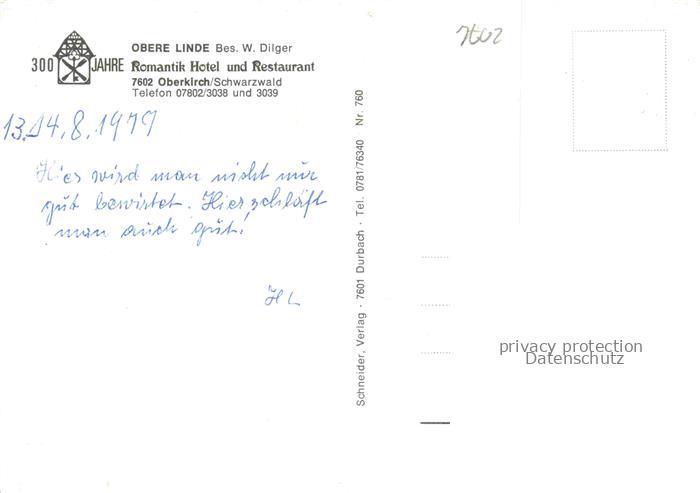 OBERE LINDE Bes. W. Dilger
300 JAHRE Romantik Hotel und Restaurant
7602 Oberkirch/Schwarzwald
Telefon 07802/3038 und 3039
13.14.8.1979
Hier wird man nicht nur
gut bewirtet. Hier schläft
man auch gut!
HL
Schneider, Verlag · 7601 Durbach · Tel. 0781/76340 Nr. 760
7602
privacy protection
Datenschutz